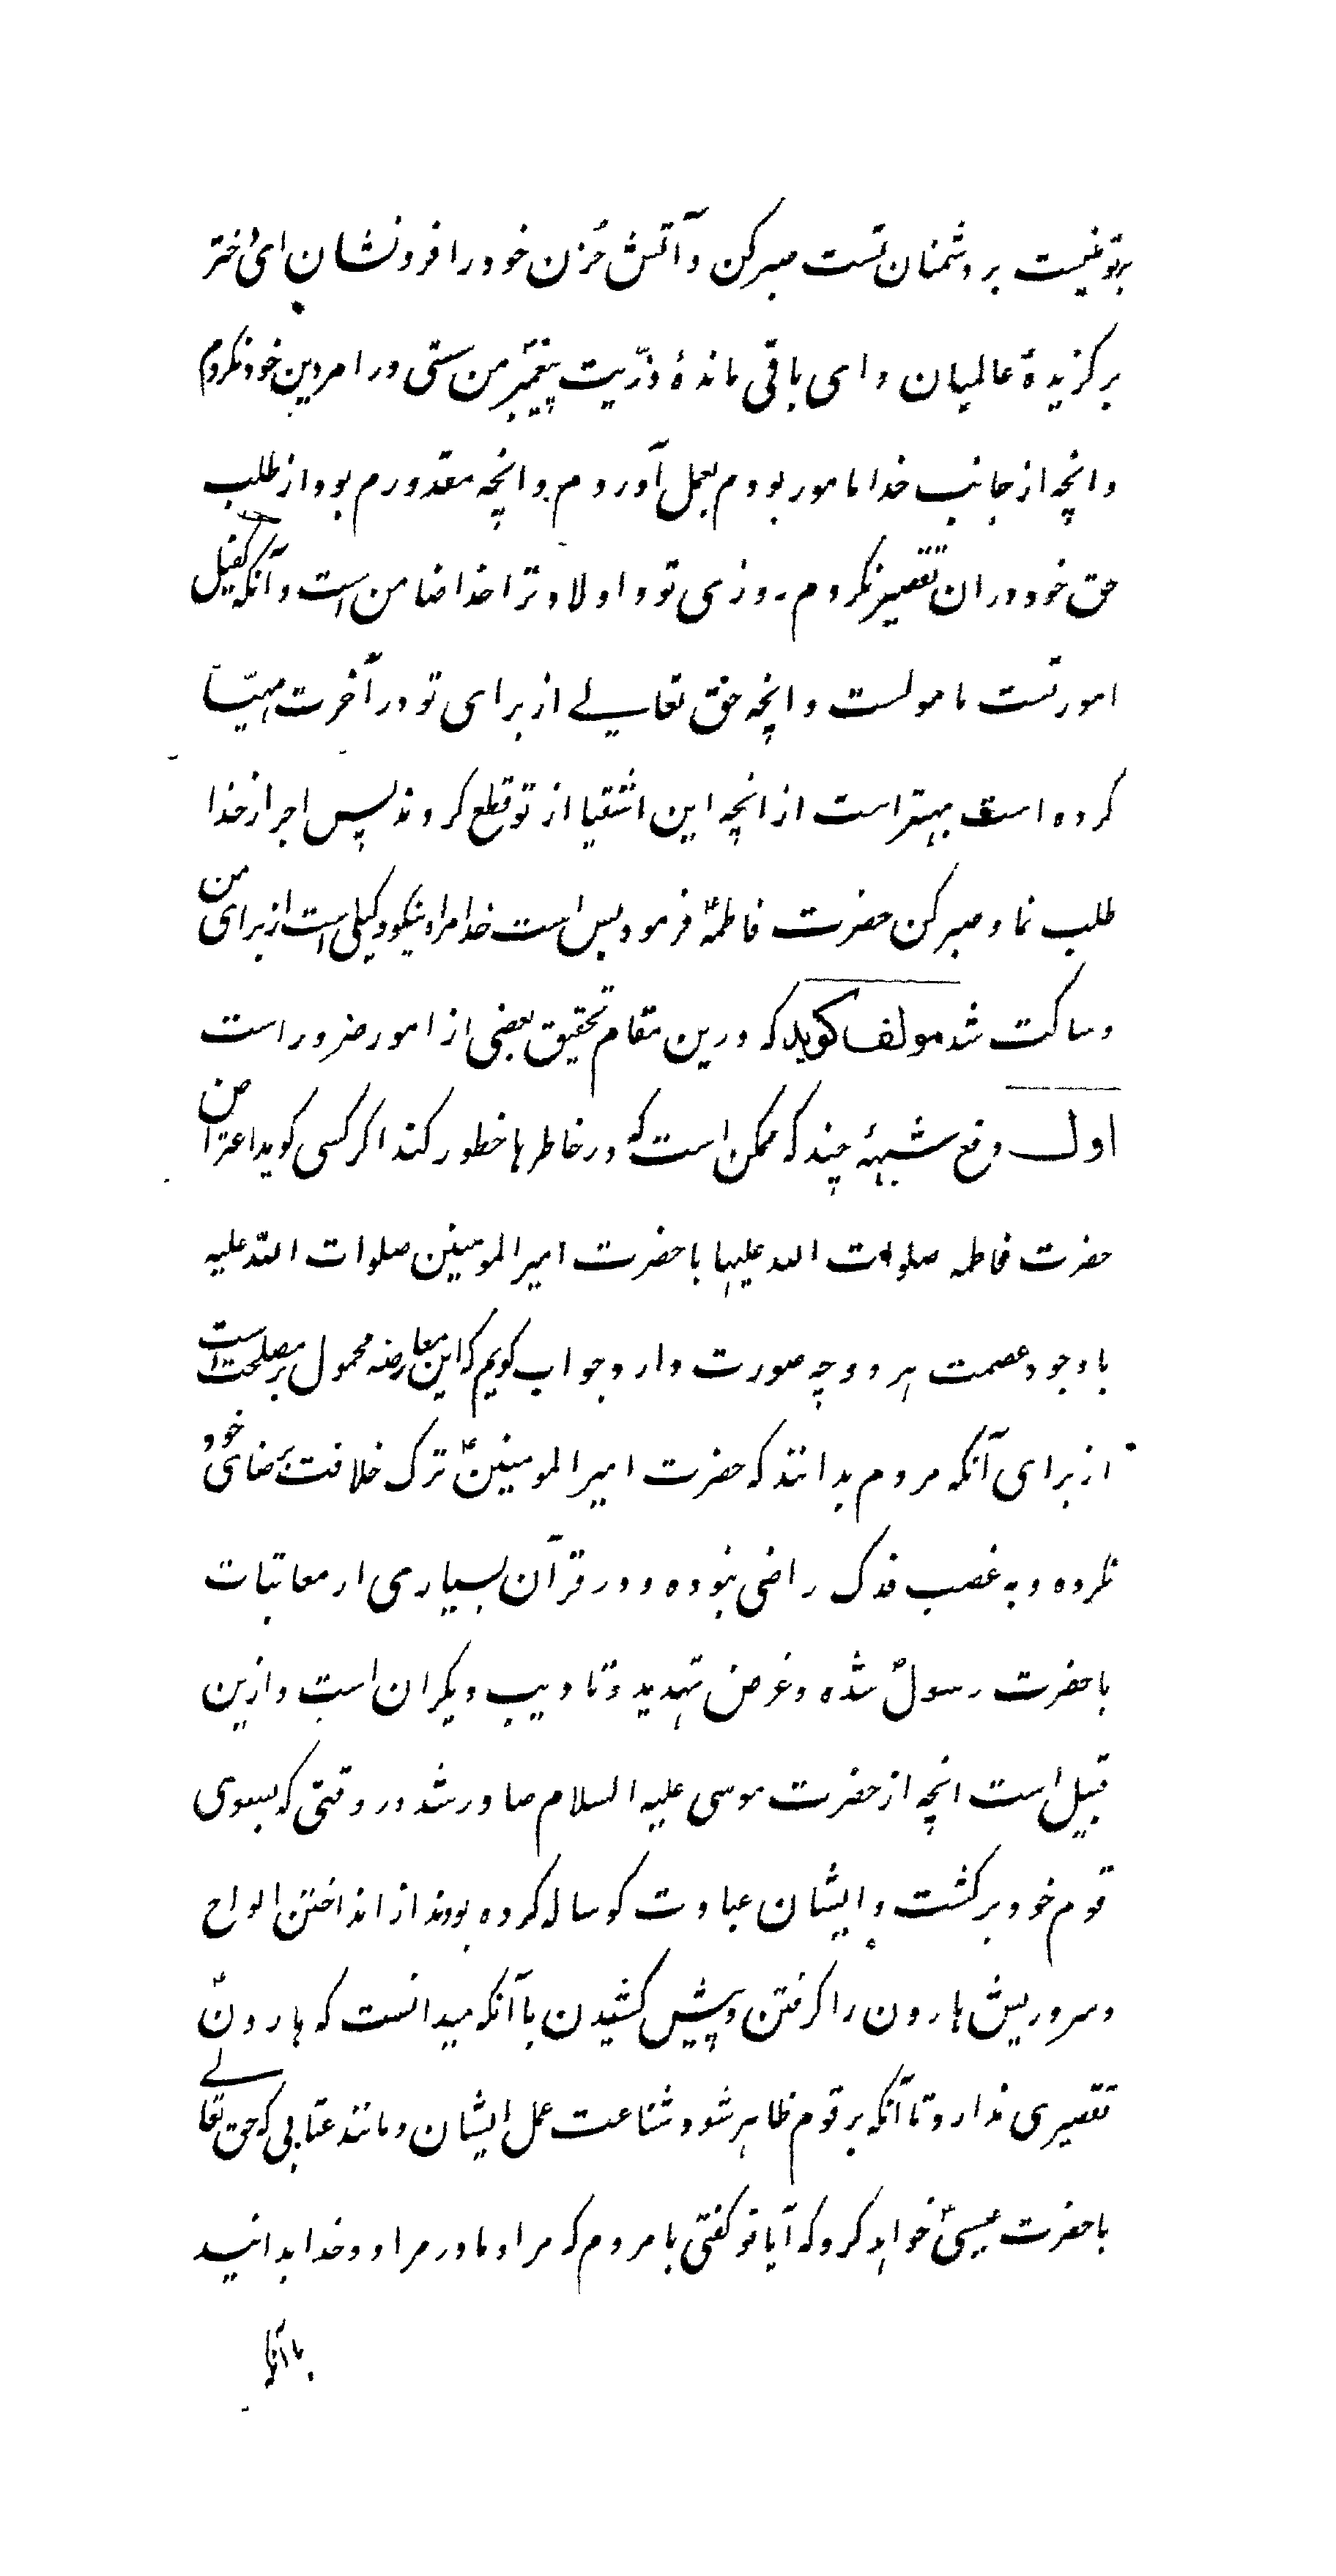 بر تو نیست بر دشمنان تست صبر کن و آتش حُزن خود را فرو نشان ای دختر
برگزیدهٔ عالمیان و ای باقی ماندهٔ ذرّیت پیغمبرؐ من سستی در امر دین خود نکردم
و انچه از جانب خدا مامور بودم بعمل آوردم و انچه مقدورم بود از طلب
حق خود دران تقصیر نکردم روزی تو و اولاد ترا خدا ضامن است و آنکه کفیل
امور تست مامونست و انچه حق تعالی از برای تو در آخرت مهیّا
کرده است بهتر است از انچه این اشقیا از تو قطع کردند پس اجر از خدا
طلب نما و صبر کن حضرت فاطمهؑ فرمود بس است خدا مرا و نیکو وکیلی است از برای من
و ساکت شد مولف کوید که درین مقام تحقیق بعضی از امور ضرور است
اول دفع شبههٔ چند که ممکن است که در خاطرها خطور کند اکر کسی کوید اعتراض
حضرت فاطمه صلوات الله علیها با حضرت امیرالمومنین صلوات الله علیه
با وجود عصمت هر دو چه صورت دارد جواب کویم که این معارضه محمول بر مصلحت است
از برای آنکه مردم بدانند که حضرت امیرالمومنینؑ ترک خلافت برضای خود
نکرده و به غصب فدک راضی نبوده و در قرآن بسیاری از معاتبات
با حضرت رسولؐ شده و غرض تهدید و تادیب دیکران است و ازین
قبیل است انچه از حضرت موسی علیه السلام صادر شد در وقتی که بسوی
قوم خود برکشت و ایشان عبادت کوساله کرده بودند از انداختن الواح
و سر و ریش هارون را کرفتن و پیش کشیدن با آنکه میدانست که هارونؑ
تقصیری ندارد تا آنکه بر قوم ظاهر شود شناعت عمل ایشان و مانند عتابی که حق تعالی
با حضرت عیسیؑ خواهد کرد که آیا تو کفتی با مردم که مرا و مادر مرا دو خدا بدانید
با آنکه